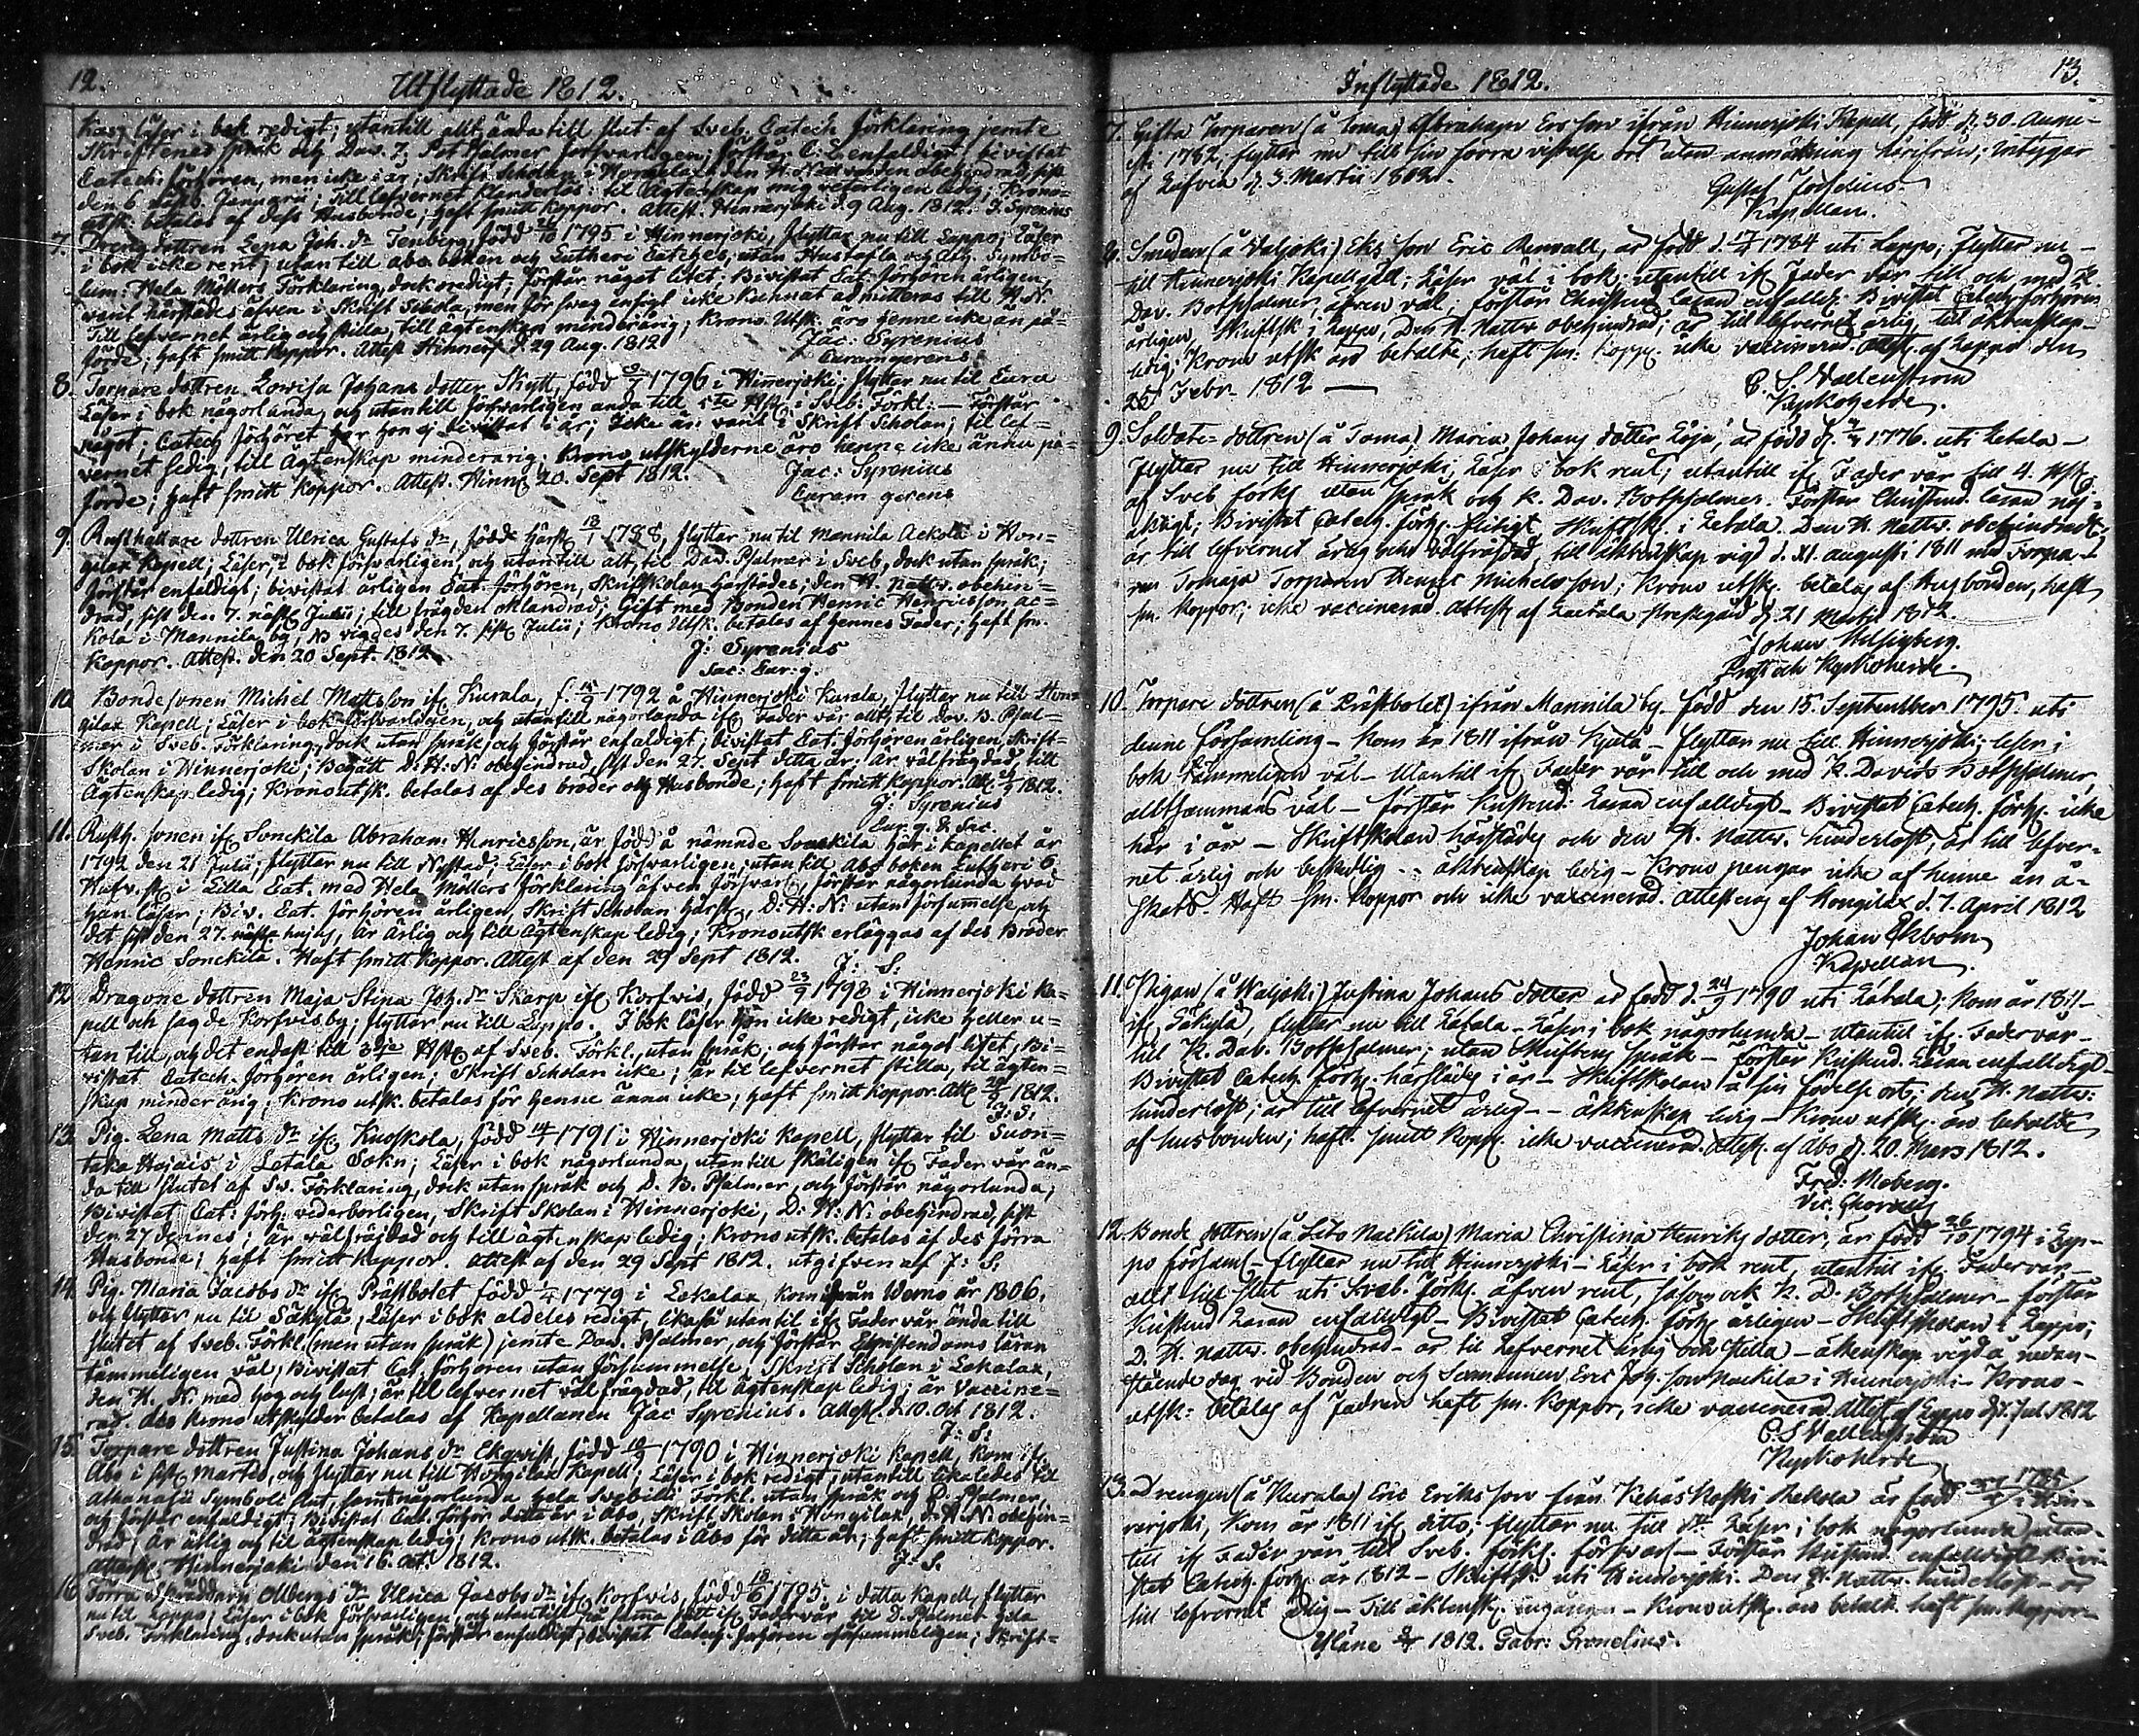 12.
Utflyttade 1812.
läser i bok redigt, utantill alt ända till slut af Sveb. Catech förklaring jemte
Skriftenes språk och Dav. 7. Pot Psalmer försvarligen; förstår enfaldigt bivistat
Catech: förhören, men icke i år; Skrift Scholan i den H. Nattvarden obehindrad, sist
den 6 Januarii; till lefvernet klanderlös: til Ägtenskap mig veterligen ledig; Krono-
utsk. betalas af dess Husbonde; haft smitt koppor. Attest. Hinnerjoki d. 9 Aug. 1812. J. Syrenius
7. Dreng dottren Lena Joh. dr Tenberg, född 1795 i Hinnerjoki, flyttar nu till Lappo; Läser
i bok icke rent; utan till abc boken och Lutheri Catches, utan Hustafla och Ath. Symbo-
lum: Hela Möllers Förklaring, dock oredigt; förstår något litet; Bivistat Cat. förhören årligen;
varit härstädes äfven i Skrift Schola, men för svag insigt icke kunnat admitteras till H. N.
Till lefvernet ärlig och stilla, till ägtenskap minderårig; Krono Utsk. äro henne icke än på-
förde; haft smitt koppor. Attest Hinnerj. d. 29 Aug. 1812
Jac: Syrenius
Curam gerens
8. Torpare dottren Lowisa Johans dotter Skytt, född 1796 i Hinnerjoki; flyttar nu til Eura
Läser i bok någorlunda, och utantill försvarligen ända till 5te Hst. i Sveb. Förkl. — Förstår
något; Catech förhöret har hon ej bivistat i år; Icke är varit i Skrift Scholan; til lef-
vernet ledig; till Ägtenskap minderårig; Krono utskylderne äro henne icke ännu på-
förde; haft smitt koppor. Attest. Hinn. 20. Sept 1812.
Jac: Syrenius
Curam gerens
9. Rusthållare dottren Ulrica Gustafs dr, född härst. 1788, flyttar nu til Mannila Ackola i Hon-
gilax Kapell; Läser i bok försvarligen, och utantill alt, til Dav. Psalmer i Sveb, dock utan språk;
förstår enfaldigt; bivistat årligen Cat. förhören, Skriftskolan härstädes; den H. Nattv. obehin-
drad, sist den 7. näst. Julii; till frägden oklandrad; Gift med Bonden Henric Henricsson Ac-
kola i Mannila by, vigdes den 7. sist. Julii; Krono Utsk. betalas af hennes Fader; haft sm.
koppor. Attest. den 20 Sept. 1812.
J: Syrenius
Sac: Cur: g.
10. Bonde sonen Michel Mattsson if. Kurala, f. 1792 å Hinnerjoki Kurala, flyttar nu till Hon-
gilax Kapell; Läser i bok försvarligen, och utantill någorlunda if. Fader vår alt, til Dav. B. Psal-
mer i Sveb. Förklaring, dock utan språk, och förstår enfaldigt; bivistat Cat. förhören årligen, Skrift-
Skolan i Hinnerjoki; Begått D: H: N: obehindrad, sist den 27. Sept detta år. är välfrägdad, till
Ägtenskap ledig; Krono utsk. betalas af des broder och Husbonde; haft smitt koppor. Att. 1812.
J: Syrenius
Cur. g. & Sac.
11. Rusth. sonen if. Sonckila Abraham Henricsson, är född å nämnde Sonckila här i kapellet år
1792 den 21 Julii; flyttar nu till Nystad; Läser i bok försvarligen; utan till Abc boken Lutheri 6
Hufv. st. i Lilla Cat. med Hela Möllers Förklaring äfven försvarl., förstår någorlunda hvad
han läser; Biv. Cat. förhören årligen, Skrift Scholan härst., D: H: N: utan försummelse, och
det sist den 27. är ärlig och till Ägtenskap ledig; Krono utsk erläggas af des Broder
Henric Sonckila. Haft smitt koppor. Attest af den 29 Sept 1812.
J: S:
12. Dragone dottren Maja Stina Joh. dr Skarp if. Korfvis, född 23/9 1798 i Hinnerjoki Ka-
pell och sagde Korfvis by; flyttar nu till Lappo. I bok läser hon icke redigt, icke heller u-
tan till, och det endast till 3dje Hst. af Sveb. Förkl., utan språk; och förstår något litet; Bi-
vistat Catech. förhören årligen; Skrift Scholan icke; är til lefvernet stilla, til ägten-
skap minderårig; Krono utsk. betalas för henne ännu icke; haft smitt koppor. Att. 1812.
J: S:
13. Pig. Lena Matts dr if. Kuoskola, född 1791 i Hinnerjoki kapell, flyttar til Suon-
taka Hojais i Letala Sokn; Läser i bok någorlunda, utantill skäligen if. Fader vår än-
da till slutet af Sv. Förklaring, dock utan språk och D. B. Psalmer, och förstår någorlunda;
Bivistat Cat: förh. vederbörligen, Skrift Skolan i Hinnerjoki, D: H: N: obehindrad, sist
den 27 dennes; är välfräjdad och till ägtenskap ledig; Krono utsk. betalas af des förra
Husbonde; haft smitt koppor. Attest af den 29 Sept 1812. utgifven af J: S:
14. Pig. Maria Jacobs dr if. Prästbolet född 1779 i Lokalax, kom ifrån Wemo år 1806,
och flyttar nu til Säkylä; Läser i bok aldeles redigt, likaså utantil if. Fader vår ända till
slutet af Sveb. Förkl. (men utan språk) jemte Dav. Psalmer, och förstår Christendoms läran
tämmeligen väl; Bivistat Cat. förhören utan försummelse, Skrift Scholan i Lokalax,
den H. N: med hog och lust; är til lefvernet väl frägdad, til ägtenskap ledig; är Vaccine-
rad. des Krono utskylder betalas af Kapellanen Jac Syrenius. Attest. d. 10. Oct 1812.
J: S:
15. Torpare dottren Justina Johans dr Ekqvist, född 1790 i Hinnerjoki kapell, kom if.
Abo i sist. Martii, och flyttar nu till Hongilax Kapell; Läser i bok redigt, utantill likaledes til
Athanasii Symboli slut, samt någorlunda hela Svebilii Förkl. utan språk och D. Psalmer,
och förstår enfaldigt; Bivistat Cat. förhör detta år i Abo, Skrift Skolan i Hongilax, d: H: N: obehin-
drad; är ärlig och til ägtenskap ledig; Krono utsk. betalas i Åbo för detta år; haft smitt koppor.
Attest. Hinnerjoki den 16. Oct. 1812.
J: S.
16. Förra Skräddaren Ulrica Jacobs dr if. Korfvis, född 1795, i detta kapell, flyttar
nu til Lappo; Läser i bok försvarligen, och utantill på samma sätt if. Fader vår til D. Psalmer hela
Sveb. Förklaring, dock utan språk; förstår enfaldigt; bivistat Catech. förhören; Skrift-
13.
Inflyttade 1812.
7. Gifta Torparen (å Toma) Abraham Ersson ifrån Hinnerjoki Kapell, född d. 30.
1782. flyttar nu till sin förra vistelse ort utan anmärkning härifrån; intygar
af d. 3. Martii 1812.
Gustaf
Kapellan.
8. Smeden (å Valjoki) Eric Renvall, är född d. 1784 uti Lappo; Flyttar nu
till Hinnerjoki Kapell gäll; Läser väl i bok; utantill if. Fader vår till och med K.
Dav. Botpsalmer, äfven väl; förstår Christend. Läran enfalldt. Bivistat Catech. förhören
årligen, Skriftsk. i Lappo, Den H. Nattv. obehindrad; är till lefvernet ärlig til äktenskap
ledig; Krono utsk. äro betalte; haft sm: kopp. icke vaccinerad. Attest. af Lappo den
25 Febr. 1812 —
C. S. Vallenstrom
Kyrkoherde.
9. Soldate-dottren (å Toma) Maria Johans dotter är född d. 1776. uti Letala
Flyttar nu till Hinnerjoki; Läser i bok rent; utantill if. Fader vår till 4. Hst.
af Sveb. förkl. utan språk och K. Dav. Botpsalmer. Förstår Christend. läran nöj-
aktigt; Bivistat Catech. förh. flitigt, Skriftsk. i Letala. Den H. Nattv. obehindradt,
är till lefvernet ärlig och välfräjdad, till äktenskap vigd d. 11. augusti 1811 med
Torparen Henric Michelsson; Krono utsk. betalas af Husbonden, haft
sm. koppor; icke vaccinerad. Attest. af Laitala Prestgård d. 21 Martii 1812.
Johan
Prost och Kyrkoherde.
10. Torpare dottren (å Prästbolet) ifrån Mannila by. född den 15. September 1795. uti
denne församling – kom år 1811 ifrån – flyttar nu till Hinnerjoki; läser i
bok tämmeligen väl – Utantill if. Fader vår till och med K. Davids Botpsalmer,
alltsammans väl – förstår Kristend: Läran enfalldigt – Bivistat Catech. förh. icke
här i år – Skriftskolan härstädes och den H. Nattv. hinderlöst, är till lefver-
net ärlig och beskedlig – äktenskap ledig – Krono pengar icke af henne än å-
skats. Haft sm. koppor och icke vaccinerad. Attesteras af Hongilax d. 7. April 1812
Johan Ekbom
Kapellan.
11. Pigan (å Waljoki) Justina Johans dotter är född d. 1790 uti Letala; kom år 1811
if. Säkylä, flyttar nu till Letala – Läser i bok någorlunda – utantill if. Fader vår
til K. Dav. Botpsalmer; utan Skriftens språk – förstår Kristend. Läran enfalldigt
Bivistat Catech. förh. härstädes i år – Skriftskolan å sin födelse ort; den H. Nattv:
hinderlöst; är till lefvernet ärlig – äktenskap ledig – Krono utsk. äro betalde
af husbonden; haft smitt kopp. icke vaccinerad. Attest. af Abo d. 20. Mars 1812.
Fred: Moberg.
Vic.
12. Bonde dottren (å Nackila) Maria Christina Henriks dotter, är född 1794 i Lap-
po församl – flyttar nu till Hinnerjoki – Läser i bok rent, utantill if. Fader vår,
allt till slut uti Sveb. förkl. äfven rent, såsom ock K. D. Botpsalmer – förstår
Kristend Läran enfalldigt – Bivistat Catech. förh. årligen – Skriftskolan i Lappo;
D. H. Nattv. obehindrad – är til Lefvernet ärlig och stilla – äktenskap vigd å nedan-
stående dag vid Bonden och Eric Joh. son Nackila i Hinnerjoki – Krono-
utsk: betalas af Fadren haft sm. koppor, icke vaccinerad. Attest. af Lappo d. Jul. 1812
C. S Vallenstrom
Kyrkoherde
13. Drengen (å Kurala) Eric Eriksson från är född 1785 i Hin-
nerjoki, kom år 1811 if. ditto; flyttar nu till Läser i bok någorlunda, utan-
till if. Fader vår till Sveb. förkl. försvarl – Förstår Kristend. enfalldigt Bivi-
stat Catech. förh. år 1812 – Skriftsk. uti Hinnerjoki. Den H. Nattv. hinderlöst – är
till lefvernet ärlig – Till äktensk. – Krono utsk. äro betald. haft sm. koppor
Yläne 1812. Gabr: Gronelius.